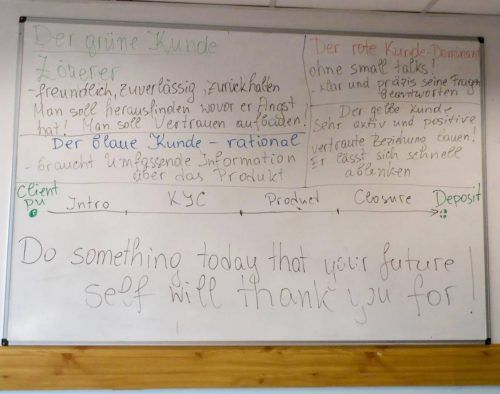 Der grüne Kunde
Zögerer
- freundlich, zuverlässig, zurückhalten
Man soll herausfinden wovor er Angst
hat! Man soll Vertrauen aufbauen!
Der blaue Kunde - rational
- braucht Umfassende Information
über das Produkt
Der rote Kunde-Dominant
ohne small talks!
- klar und präzis seine Fragen
beantworten
Der gelbe Kunde
Sehr aktiv und positive
vertraute Beziehung bauen!
Er lässt sich schnell
ablenken
Client
pu
Intro KYC Product Closure
Deposit
Do something today that your future
self will thank you for!